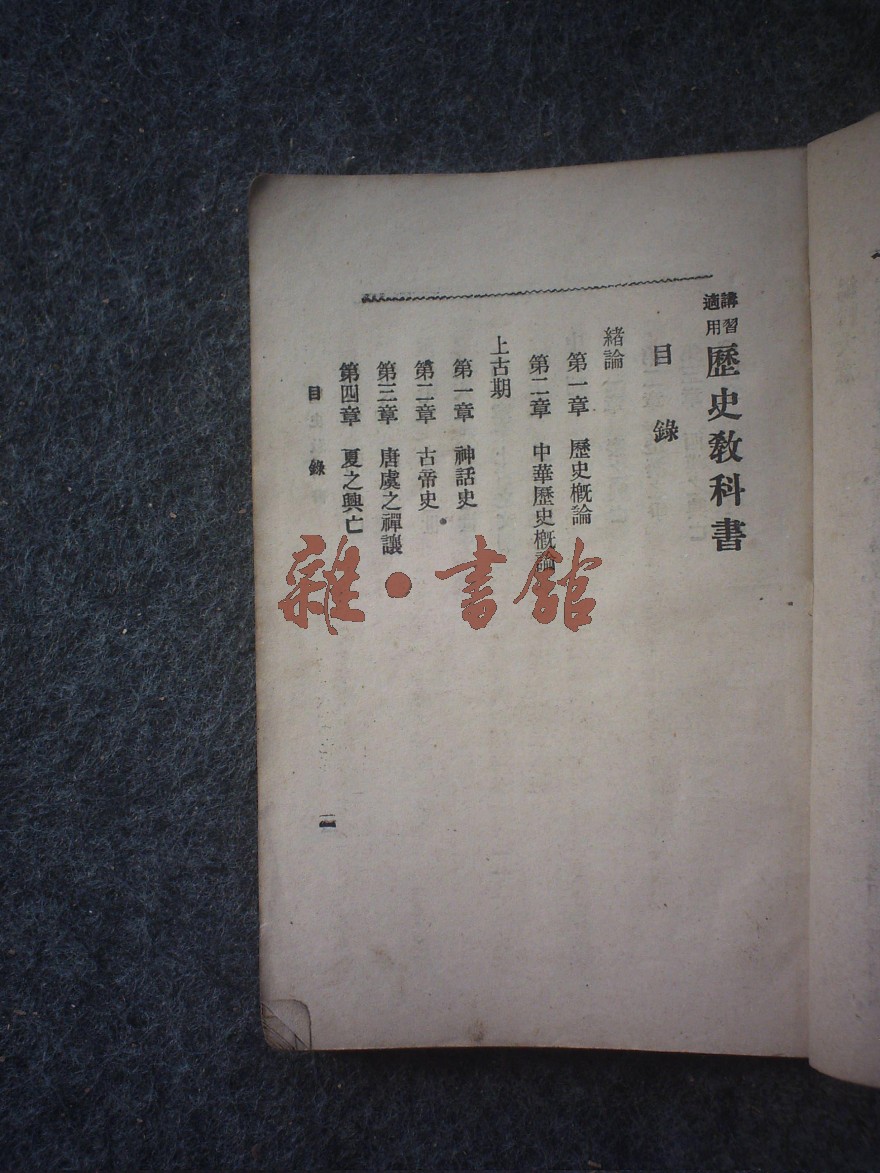 講習適用歷史教科書
目錄
緒論
第一章 歷史槪論
第二章 中華歷史槪論
上古期
第一章 神話史
第二章 古帝史
第三章 唐虞之禪讓
第四章 夏之興亡
目錄
一
雜·書館